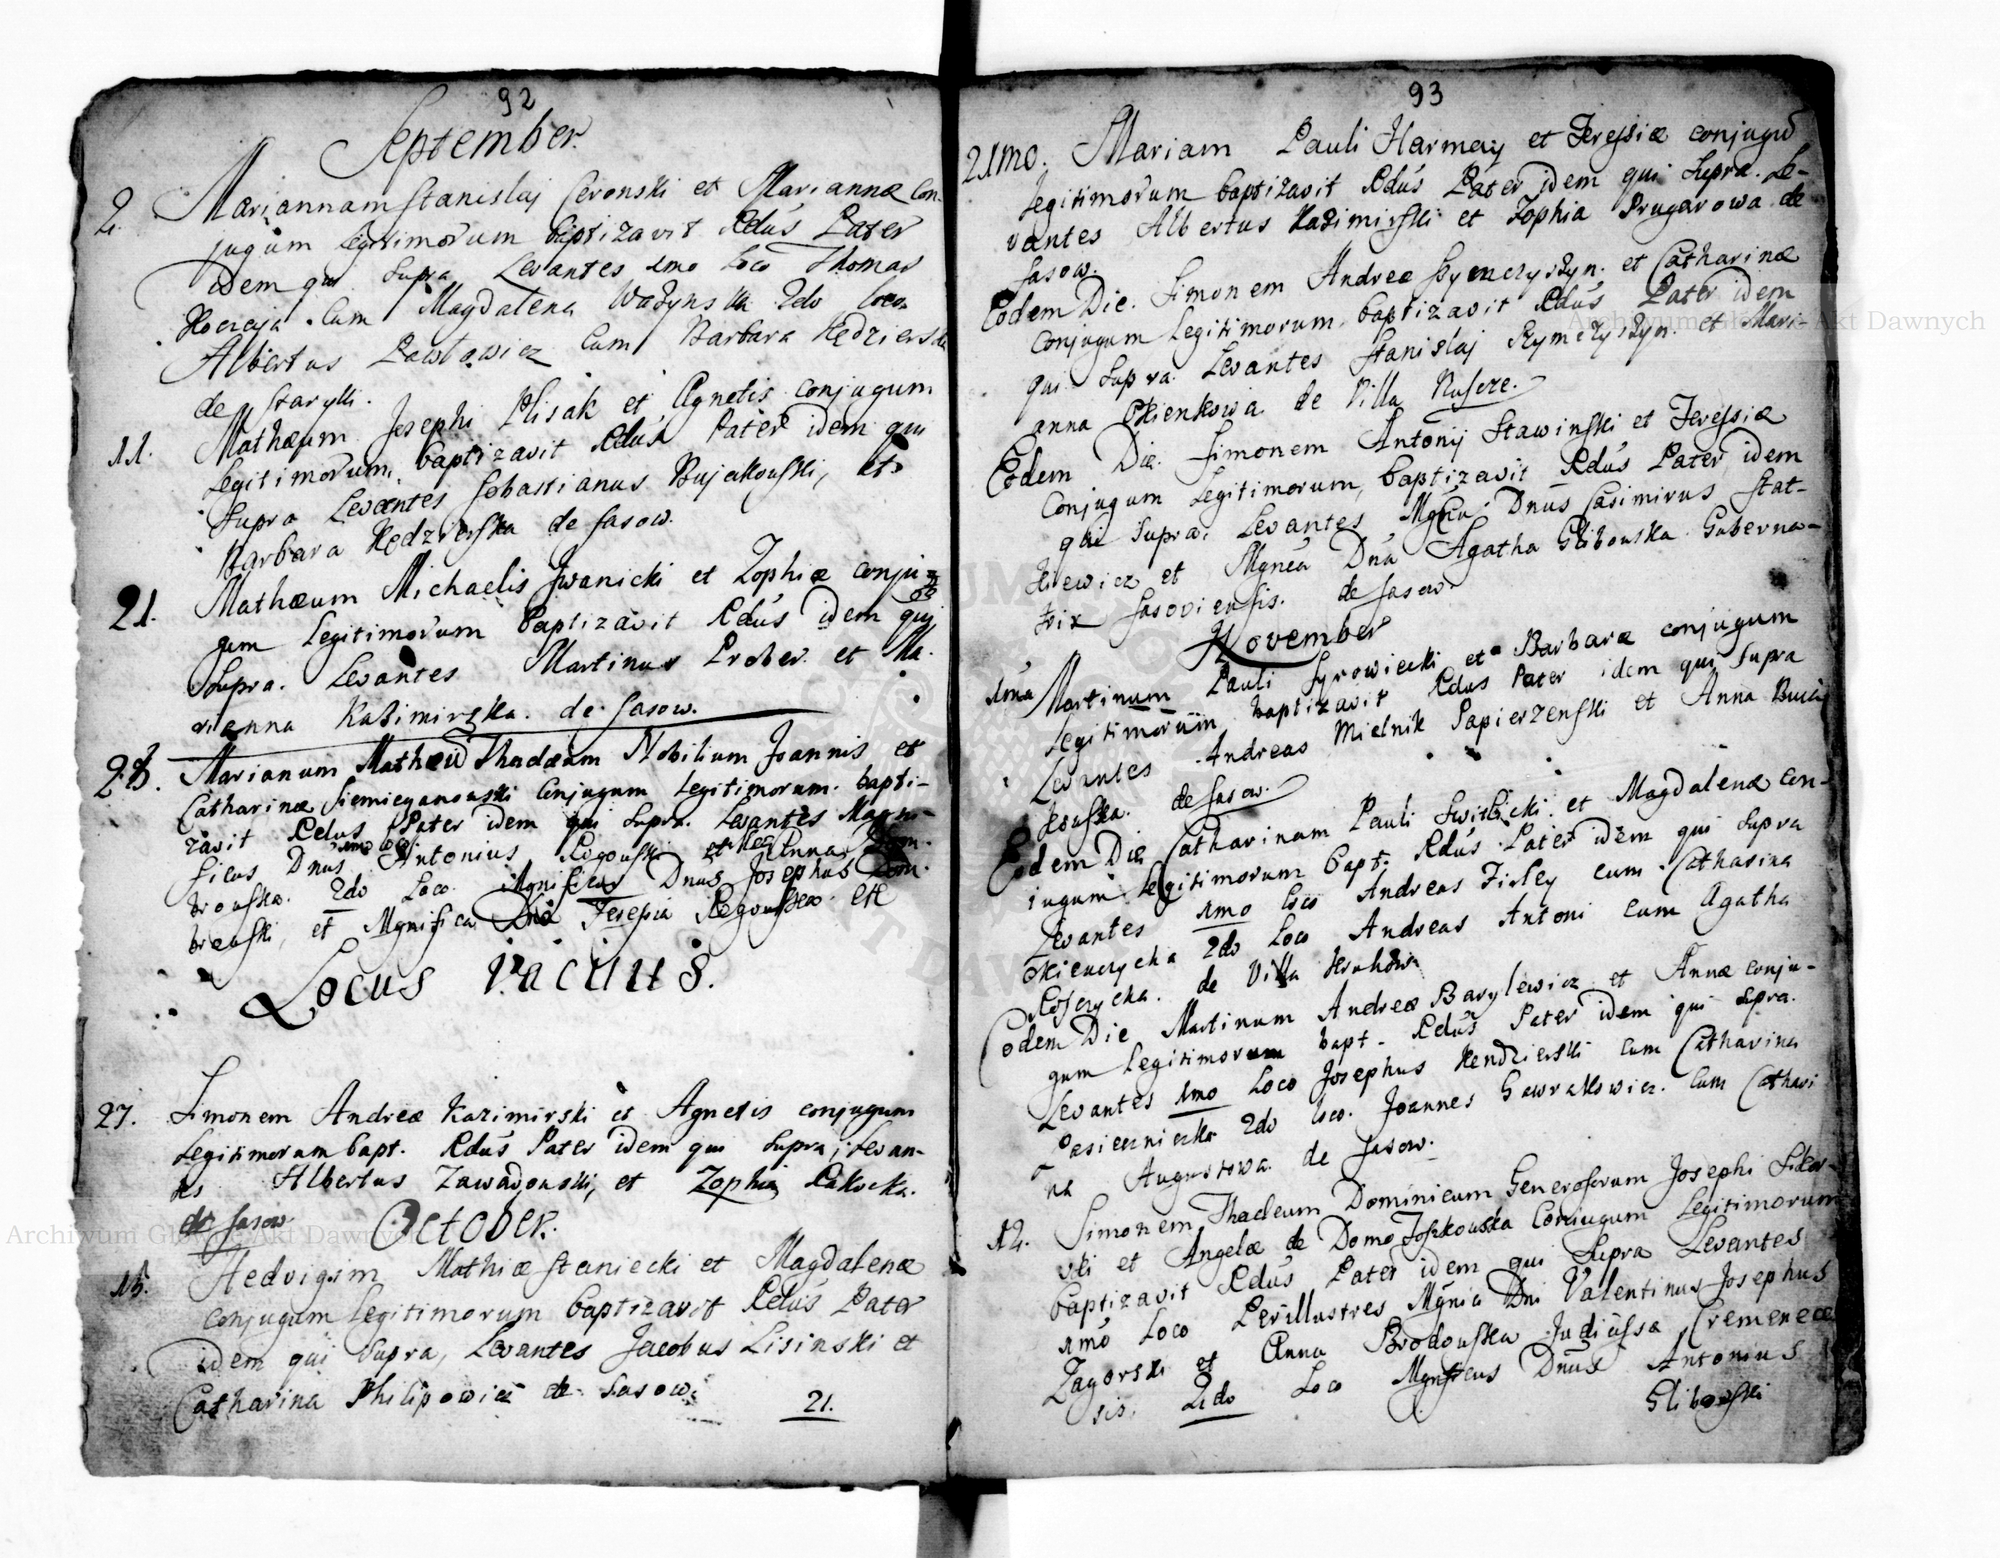 92
September.
2. Mariannam Stanislaj Ceronski et Mariannæ Con-
jugum Legitimorum baptizavit Rdus Pater
idem qui Supra Levantes 1mo Loco Thomas
Koczaja Cum Magdalena Wazynska 2do loco
Albertus Pawlowicz Cum Barbara Kędzierska
de Starylli.
11. Mathæum Josephi Plisak et Agnetis conjugum
Legitimorum, baptizavit Rdus Pater idem qui
Supra Levantes Sebastianus Bujakouski, et
Barbara Kędzierska de Sasow.
21. Mathæum Michaelis Jwanicki et Zophiæ conju-
gum Legitimorum baptizavit Rdus idem qui
Supra. Levantes Martinus Prober et Ma-
rianna Kazimirska. de Sasow.
Marianum Thadæum Nobilium Joannis et
Catharinæ Siemieganouski Conjugum Legitimorum. bapti-
zavit Rdus Pater idem qui Supra. Levantes Magni-
ficus Dnus Antonius Rogouski et Anna Dom-
brouska. 2do Loco. Mgnificus Dnus Josephus Dom-
brouski, et Mgnifica Dna Teresia Rogouska
Locus vacuus.
27. Simonem Andreæ Kazimirski et Agnetis conjugum
Legitimorum bapt. Rdus Pater idem qui Supra; Levan-
tes Albertus Zawadouski, et Zophia Rakocka.
de Sasow
October.
15. Hedvigem Mathiæ Staniecki et Magdalenæ
conjugum Legitimorum baptizavit Rdus Pater
idem qui Supra, Levantes Jacobus Lisinski et
Catharina Philipowicz de Sasow.
21.
93
21mo. Mariam Pauli Harmaz et Teressiæ conjugum
Legitimorum baptizavit Rdus Pater idem qui Supra. Le-
vantes Albertus Kazimirski et Zophia Prugarowa de
Sasow.
Eodem Die. Simonem Andreæ et Catharinæ
Conjugum Legitimorum, baptizavit Rdus Pater idem
qui Supra. Levantes Stanislaj et Mari-
anna Okienkowa de Villa Nuscze.
Eodem Die. Simonem Antonij Stawinski et Teressiæ
Conjugum Legitimorum, baptizavit Rdus Pater idem
qui Supra. Levantes Dnus Casimirus Stat-
kiewicz et Mgnca Dna Agatha Glibouska Guberna-
trix Sasoviensis. de Sasow.
November
1ma Martinum Pauli Syrowiecki et Barbaræ conjugum
Legitimorum baptizavit Rdus Pater idem qui Supra
Levantes Andreas Mielnik Papierzenski et Anna
de Sasow.
Eodem Die Catharinam Pauli Switlicki et Magdalenæ con-
iugum Legitimorum bapt. Rdus Pater idem qui Supra
Levantes 1mo loco Andreas Firley cum Catharina
Okienczycha 2do Loco Andreas Antoni cum Agatha
de Villa Hruhow
Eodem Die Martinum Andreæ Barylewicz et Annæ conju-
gum Legitimorum bapt. Rdus Pater idem qui Supra.
Levantes 1mo Loco Josephus Kendzierski cum Catharina
Pasiecznicka 2do loco. Joannes Gawrakowicz. Cum Cathari
na Augustowa. de Sasow.
12. Simonem Thadeum Dominicum Generosorum Josephi Sikor-
ski et Angelæ de Domo Joskouska Coniugum Legitimorum
baptizavit Rdus Pater idem qui Supra Levantes
1mo Loco Perillustres Dni Valentinus Josephus
Zagorski et Anna Brodouska Judicissa Cremenecen
sis. 2do Loco Mgnficus Dnus Antonius
Glibouski
Archiwum Główne Akt Dawnych
Archiwum Główne Akt Dawnych